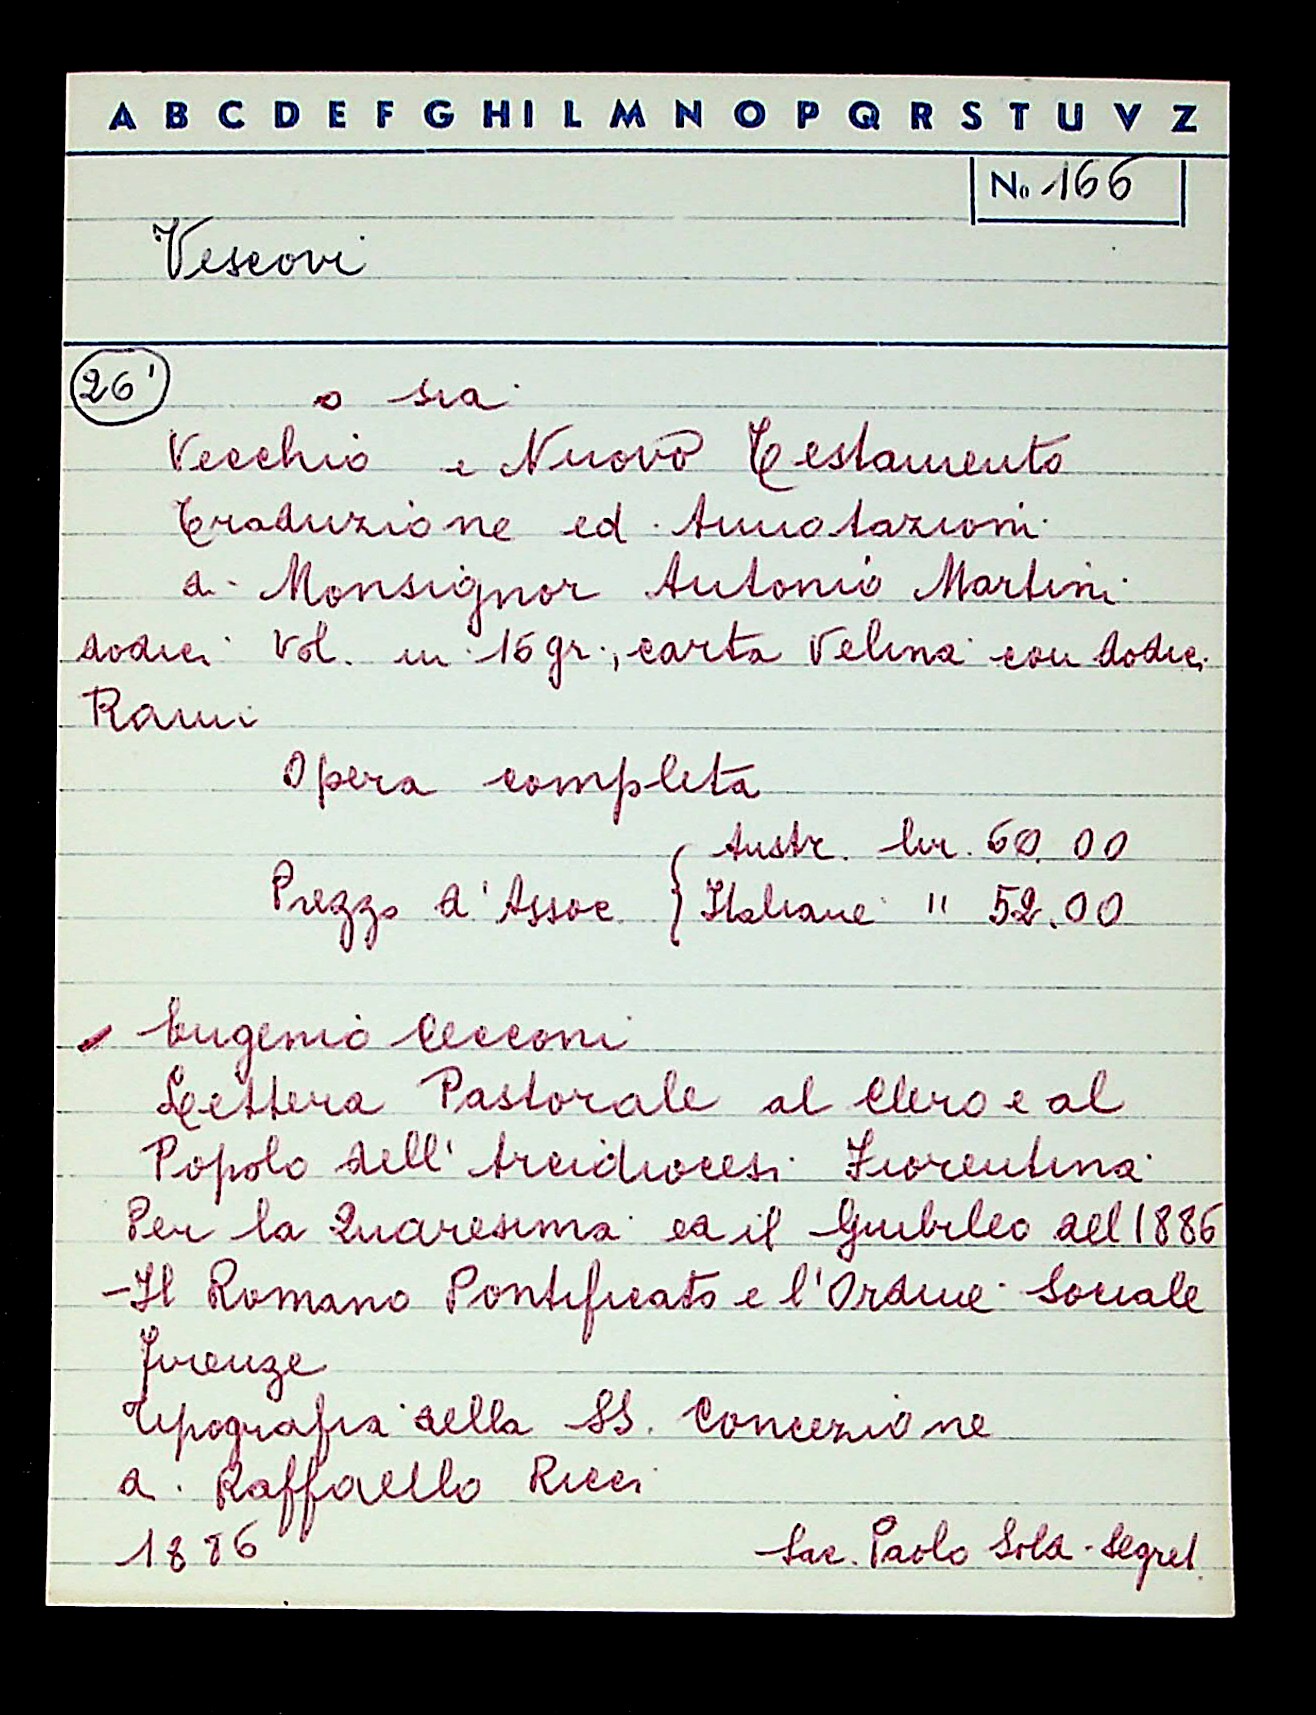 A B C D E F G H I L M N O P Q R S T U V Z
No 166
Vescovi
26'
o sia
Vecchio e Nuovo Testamento
Traduzione ed Annotazioni
di Monsignor Antonio Martini
dodici Vol. in 16 gr., carta Velina con dodici
Rami
Opera completa
Austr. lir. 60.00
Prezzo d'Assoc. { Italiane " 52.00
Eugenio Cecconi
Lettera Pastorale al Clero e al
Popolo dell'Arcidiocesi Fiorentina
Per la Quaresima ed il Giubileo del 1886
-Il Romano Pontificato e l'Ordine Sociale
Firenze
Tipografia della SS. Concezione
di Raffaello Ricci
1886
Sac. Paolo Soldi - Segret.